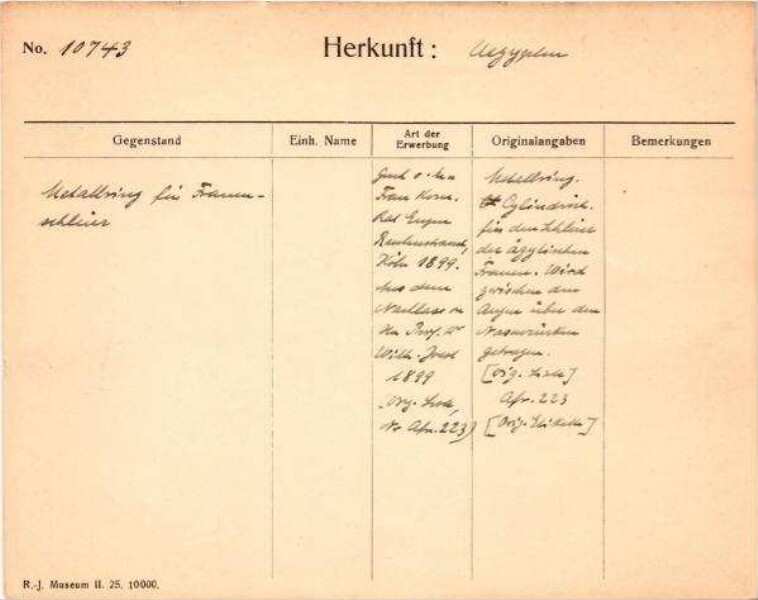 No. 10743
Herkunft: Aegypten
Gegenstand
Einh. Name
Art der
Erwerbung
Originalangaben
Bemerkungen
Metallring für Frauen-
schleier
Frau Kom.
Rat Eugen
Rautenstrauch,
Köln 1899.
Aus dem
Nachlass v.
Hn Prof. Dr
Wilh. Joest
1899
Orig. Liste,
No Afr. 223)
Metallring.
Cylindrisch.
für den Schleier
der ägyptischen
Frauen. Wird
zwischen den
Augen über dem
Nasenrücken
getragen.
[Orig. Liste]
Afr. 223
[Orig. Etikette]
R.-J. Museum II. 25. 10000.